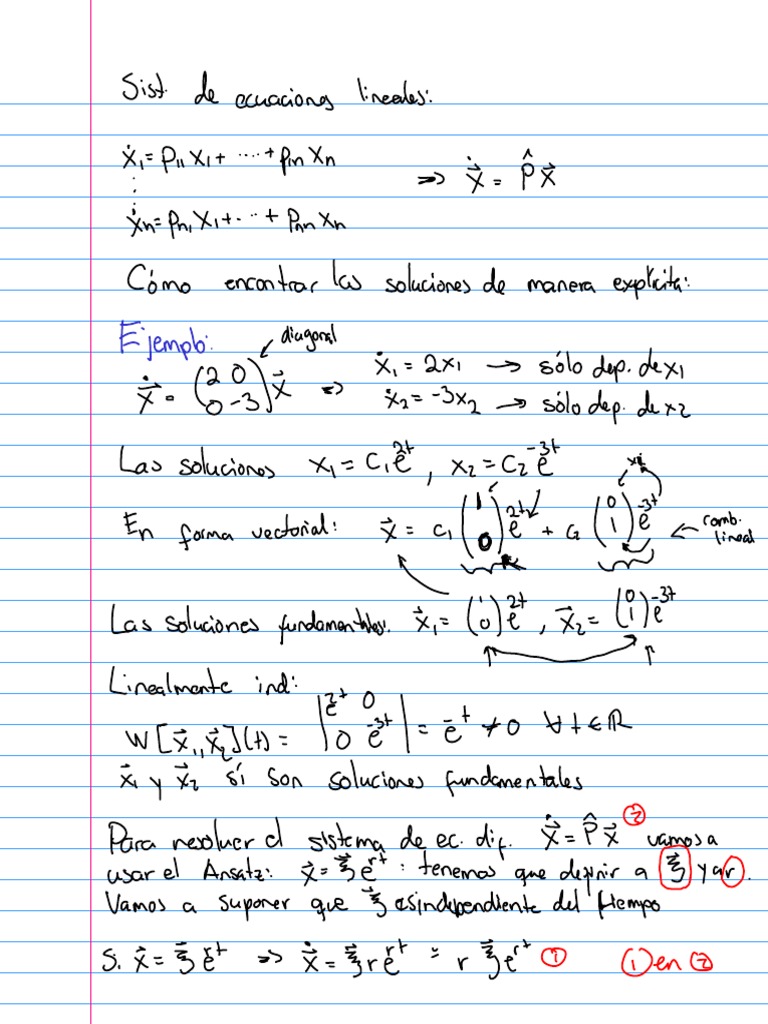 Sist. de ecuaciones lineales:
ẋ₁ = p₁₁ x₁ + ···· + p₁ₙ xₙ
⋮ => ẋ⃗ = P̂ x⃗
ẋₙ = pₙ₁ x₁ + ·· + pₙₙ xₙ
Cómo encontrar las soluciones de manera explícita:
Ejemplo: diagonal
ẋ⃗ = (2 0; 0 -3) x⃗ => ẋ₁ = 2x₁ → sólo dep. de x₁
ẋ₂ = -3x₂ → sólo dep. de x₂
Las soluciones x₁ = C₁e^{2t}, x₂ = C₂e^{-3t}
En forma vectorial: x⃗ = C₁ (1; 0) e^{2t} + C₂ (0; 1) e^{-3t} ← comb. lineal
Las soluciones fundamentales: x⃗₁ = (1; 0) e^{2t}, x⃗₂ = (0; 1) e^{-3t}
Linealmente ind:
W[x⃗₁, x⃗₂](t) = |e^{2t} 0; 0 e^{-3t}| = e^{-t} ≠ 0 ∀ t ∈ ℝ
x⃗₁ y x⃗₂ sí son soluciones fundamentales
Para resolver el sistema de ec. dif. ẋ⃗ = P̂ x⃗ ② vamos a
usar el Ansatz: x⃗ = ξ⃗ e^{rt} : tenemos que definir a ξ⃗ y a r.
Vamos a suponer que ξ⃗ es independiente del tiempo
S. x⃗ = ξ⃗ e^{rt} => ẋ⃗ = ξ⃗ r e^{rt} = r ξ⃗ e^{rt} ① ① en ②